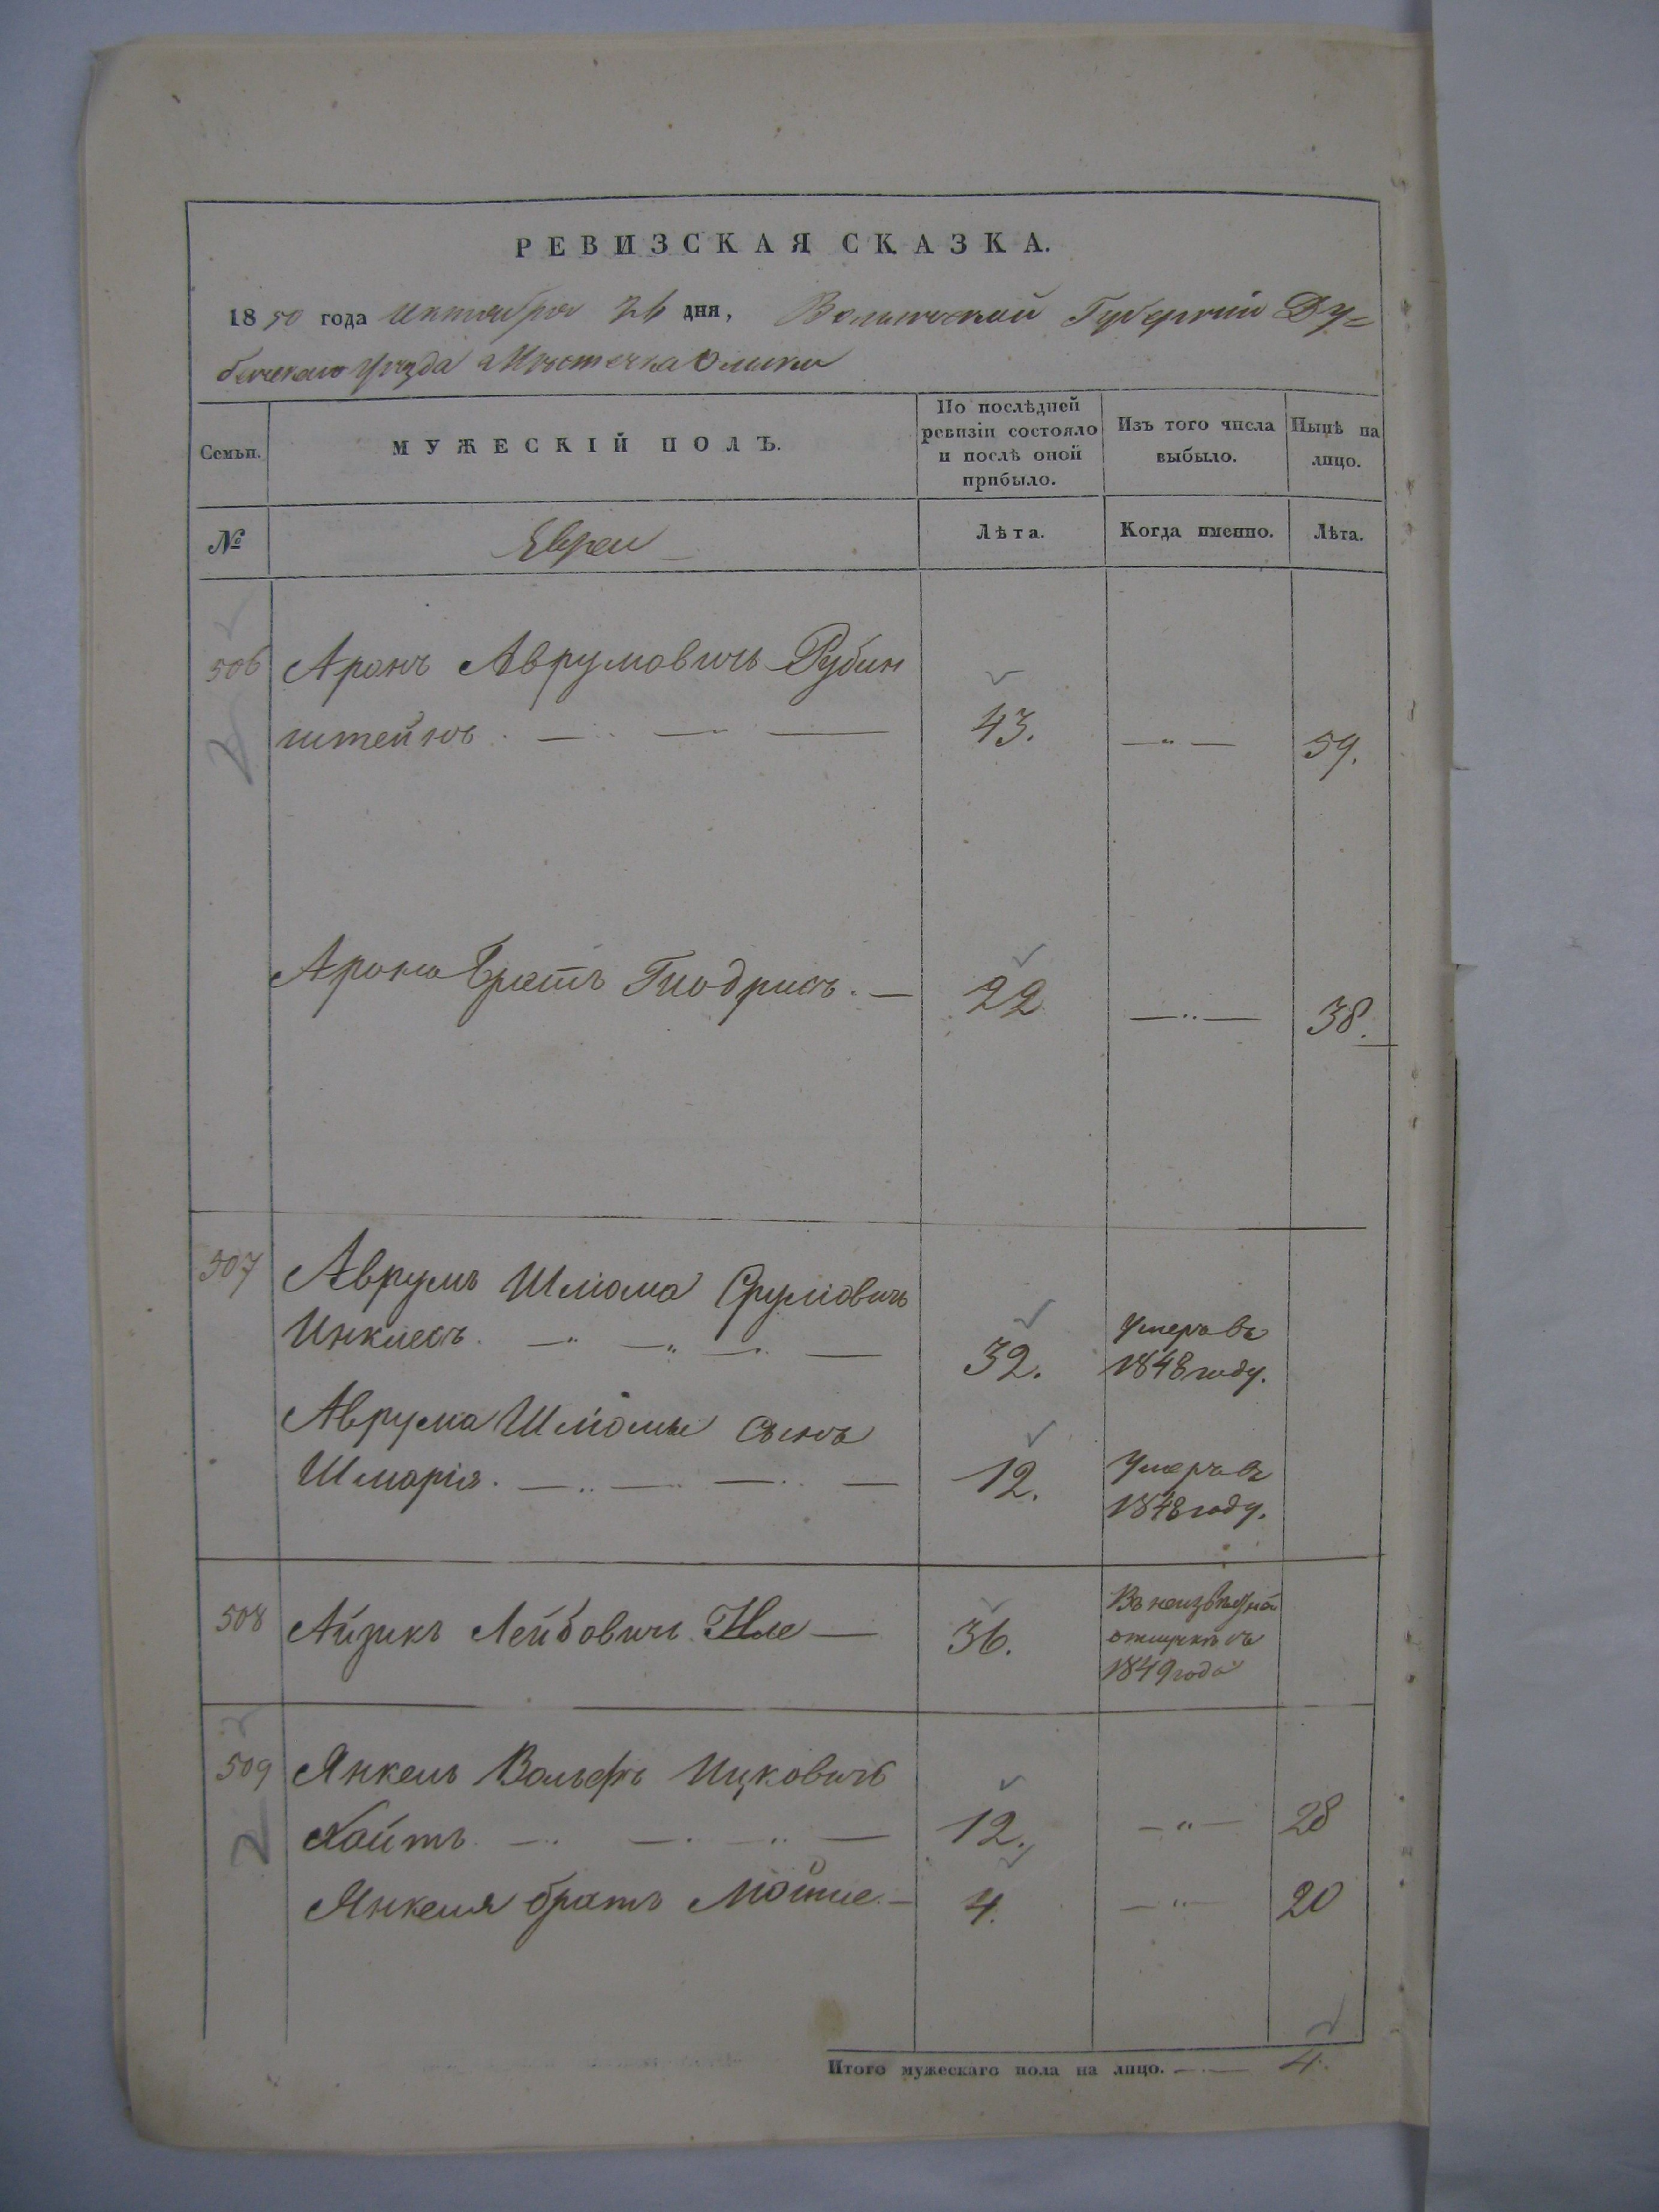 РЕВИЗСКАЯ СКАЗКА.
1850 года Октября 26 дня, Волынской Губерніи Ду=
бенскаго Уѣзда Мѣстечка Олыки
Семьи.
МУЖЕСКІЙ ПОЛЪ.
По послѣдней ревизіи состояло и послѣ оной прибыло.
Изъ того числа выбыло.
Нынѣ на лицо.
№
Евреи
Лѣта.
Когда именно.
Лѣта.
506 Аронъ Аврумовичъ Рубин
штейнъ. 43. — " — 59.
Арона братъ 22 — " — 38.
507 Аврумъ Шліома Сруліовичъ
Инклесъ. 32. Умеръ въ
1848 году.
Аврума Шліомы сынъ
Шмарія. 12. Умеръ въ
1848 году.
508 Айзикъ Лейбовичъ 36. Въ неизвѣстной
отлучкѣ съ
1849 года
509 Янкель Вольфъ Ицковичъ
Хайтъ. 12. — " — 28
Янкеля братъ Мошие. 4. — " — 20
Итого мужескаго пола на лицо. 4.